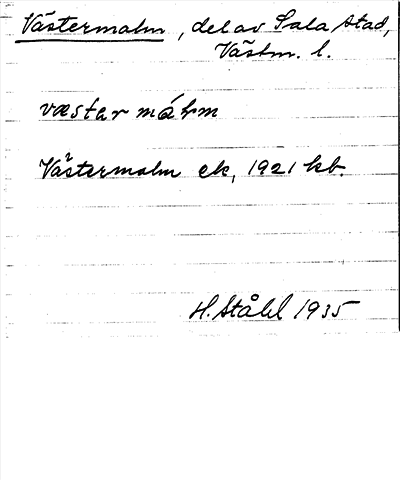 Västermalm, del av Sala stad,
Västm. l.
væstar málm
Västermalm ek, 1921 kb.
H. Ståhl 1935